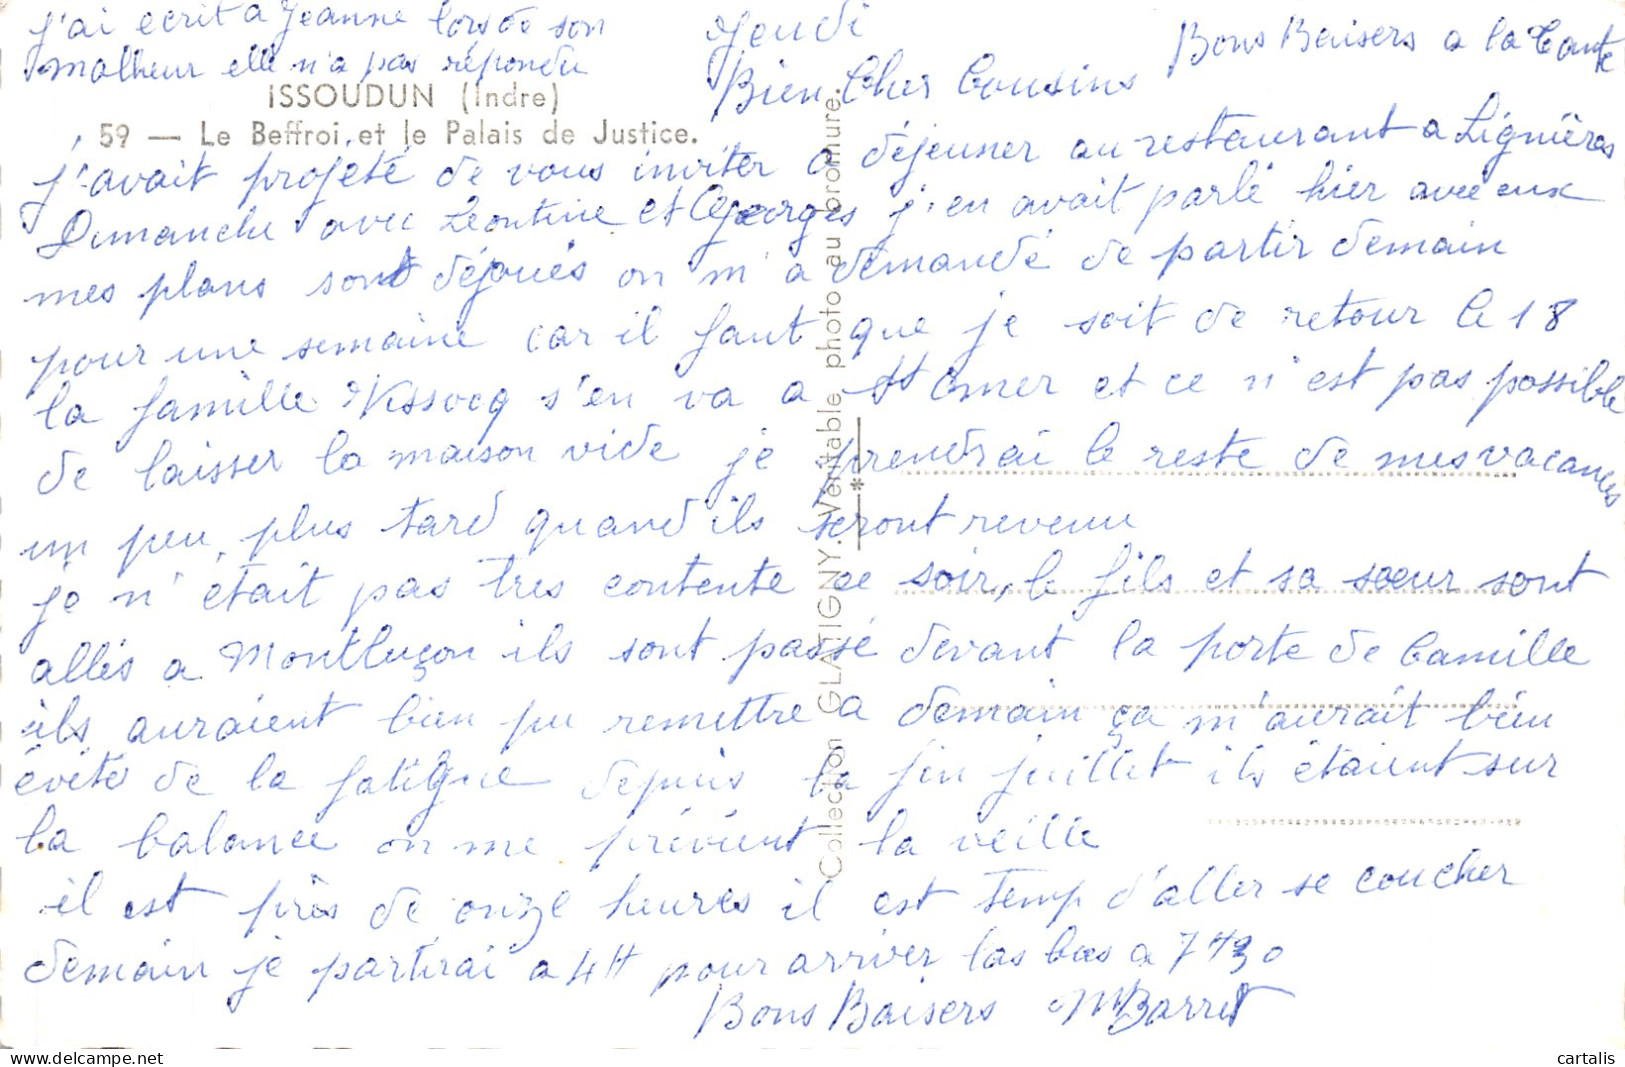 j'ai ecrit a Jeanne lors de son
malheur elle n'a pas répondu
ISSOUDUN (Indre)
59 — Le Beffroi et le Palais de Justice.
Jeudi
Bons Baisers a la Tante
Bien Cher Cousins
j'avait projeté de vous inviter a déjeuner au restaurant a Lignières
Dimanche avec Léontine et Georges j'en avait parlé hier avec eux
mes plans sont déjoués on m'a demandé de partir demain
pour une semaine car il faut que je soit de retour le 18
la famille Vissocq s'en va a St Omer et ce n'est pas possible
de laisser la maison vide je prendrai le reste de mes vacances
un peu plus tard quand ils seront revenu
je n'était pas très contente ce soir, le fils et sa sœur sont
allés a Montluçon ils sont passé devant la porte de Camille
ils auraient bien pu remettre a demain ça m'aurait bien
évité de la fatigue depuis la fin juillet ils étaient sur
la balance on me prévient la veille
il est près de onze heures il est temp d'aller se coucher
demain je partirai a 4H pour arriver las bas a 7H30
Bons Baisers M Barret
Collection GLATIGNY. Véritable photo au bromure.
cartalis